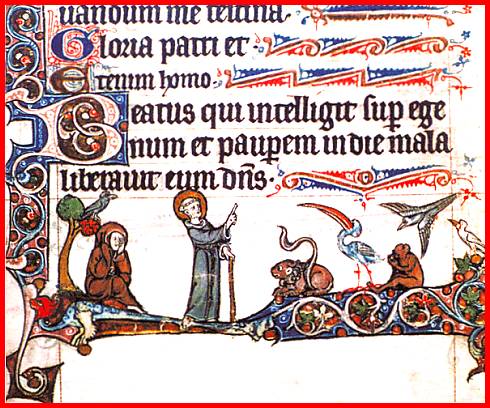 uandum me festina.
Gloria patri et
Etenim homo.
Beatus qui intelligit sup ege
num et paupem in die mala
liberauit eum dns.